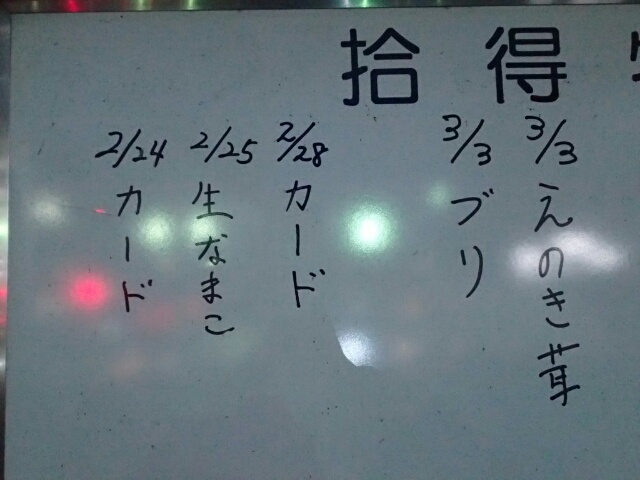 拾得
3/3 えのき茸
3/3 ブリ
2/28 カード
2/25 生なまこ
2/24 カード